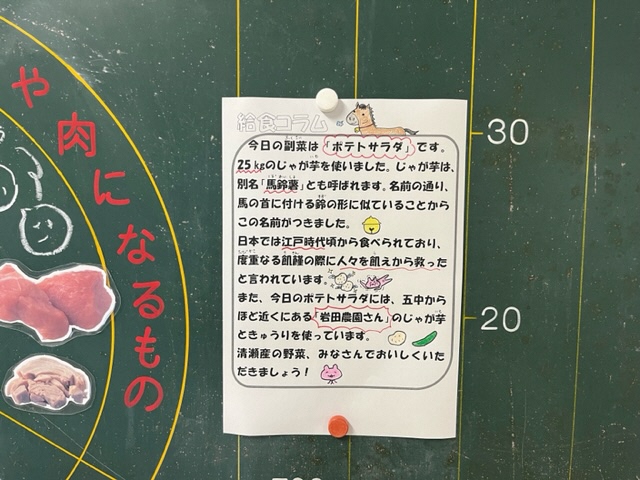 や肉になるもの
給食コラム
今日の副菜は「ポテトサラダ」です。
25kgのじゃが芋を使いました。じゃが芋は、
別名「馬鈴薯」とも呼ばれます。名前の通り、
馬の首に付ける鈴の形に似ていることから
この名前がつきました。
日本では江戸時代頃から食べられており、
度重なる飢饉の際に人々を飢えから救った
と言われています。
また、今日のポテトサラダには、五中から
ほど近くにある「岩田農園さん」のじゃが芋
ときゅうりを使っています。
清瀬産の野菜、みなさんでおいしくいた
だきましょう！
30
20